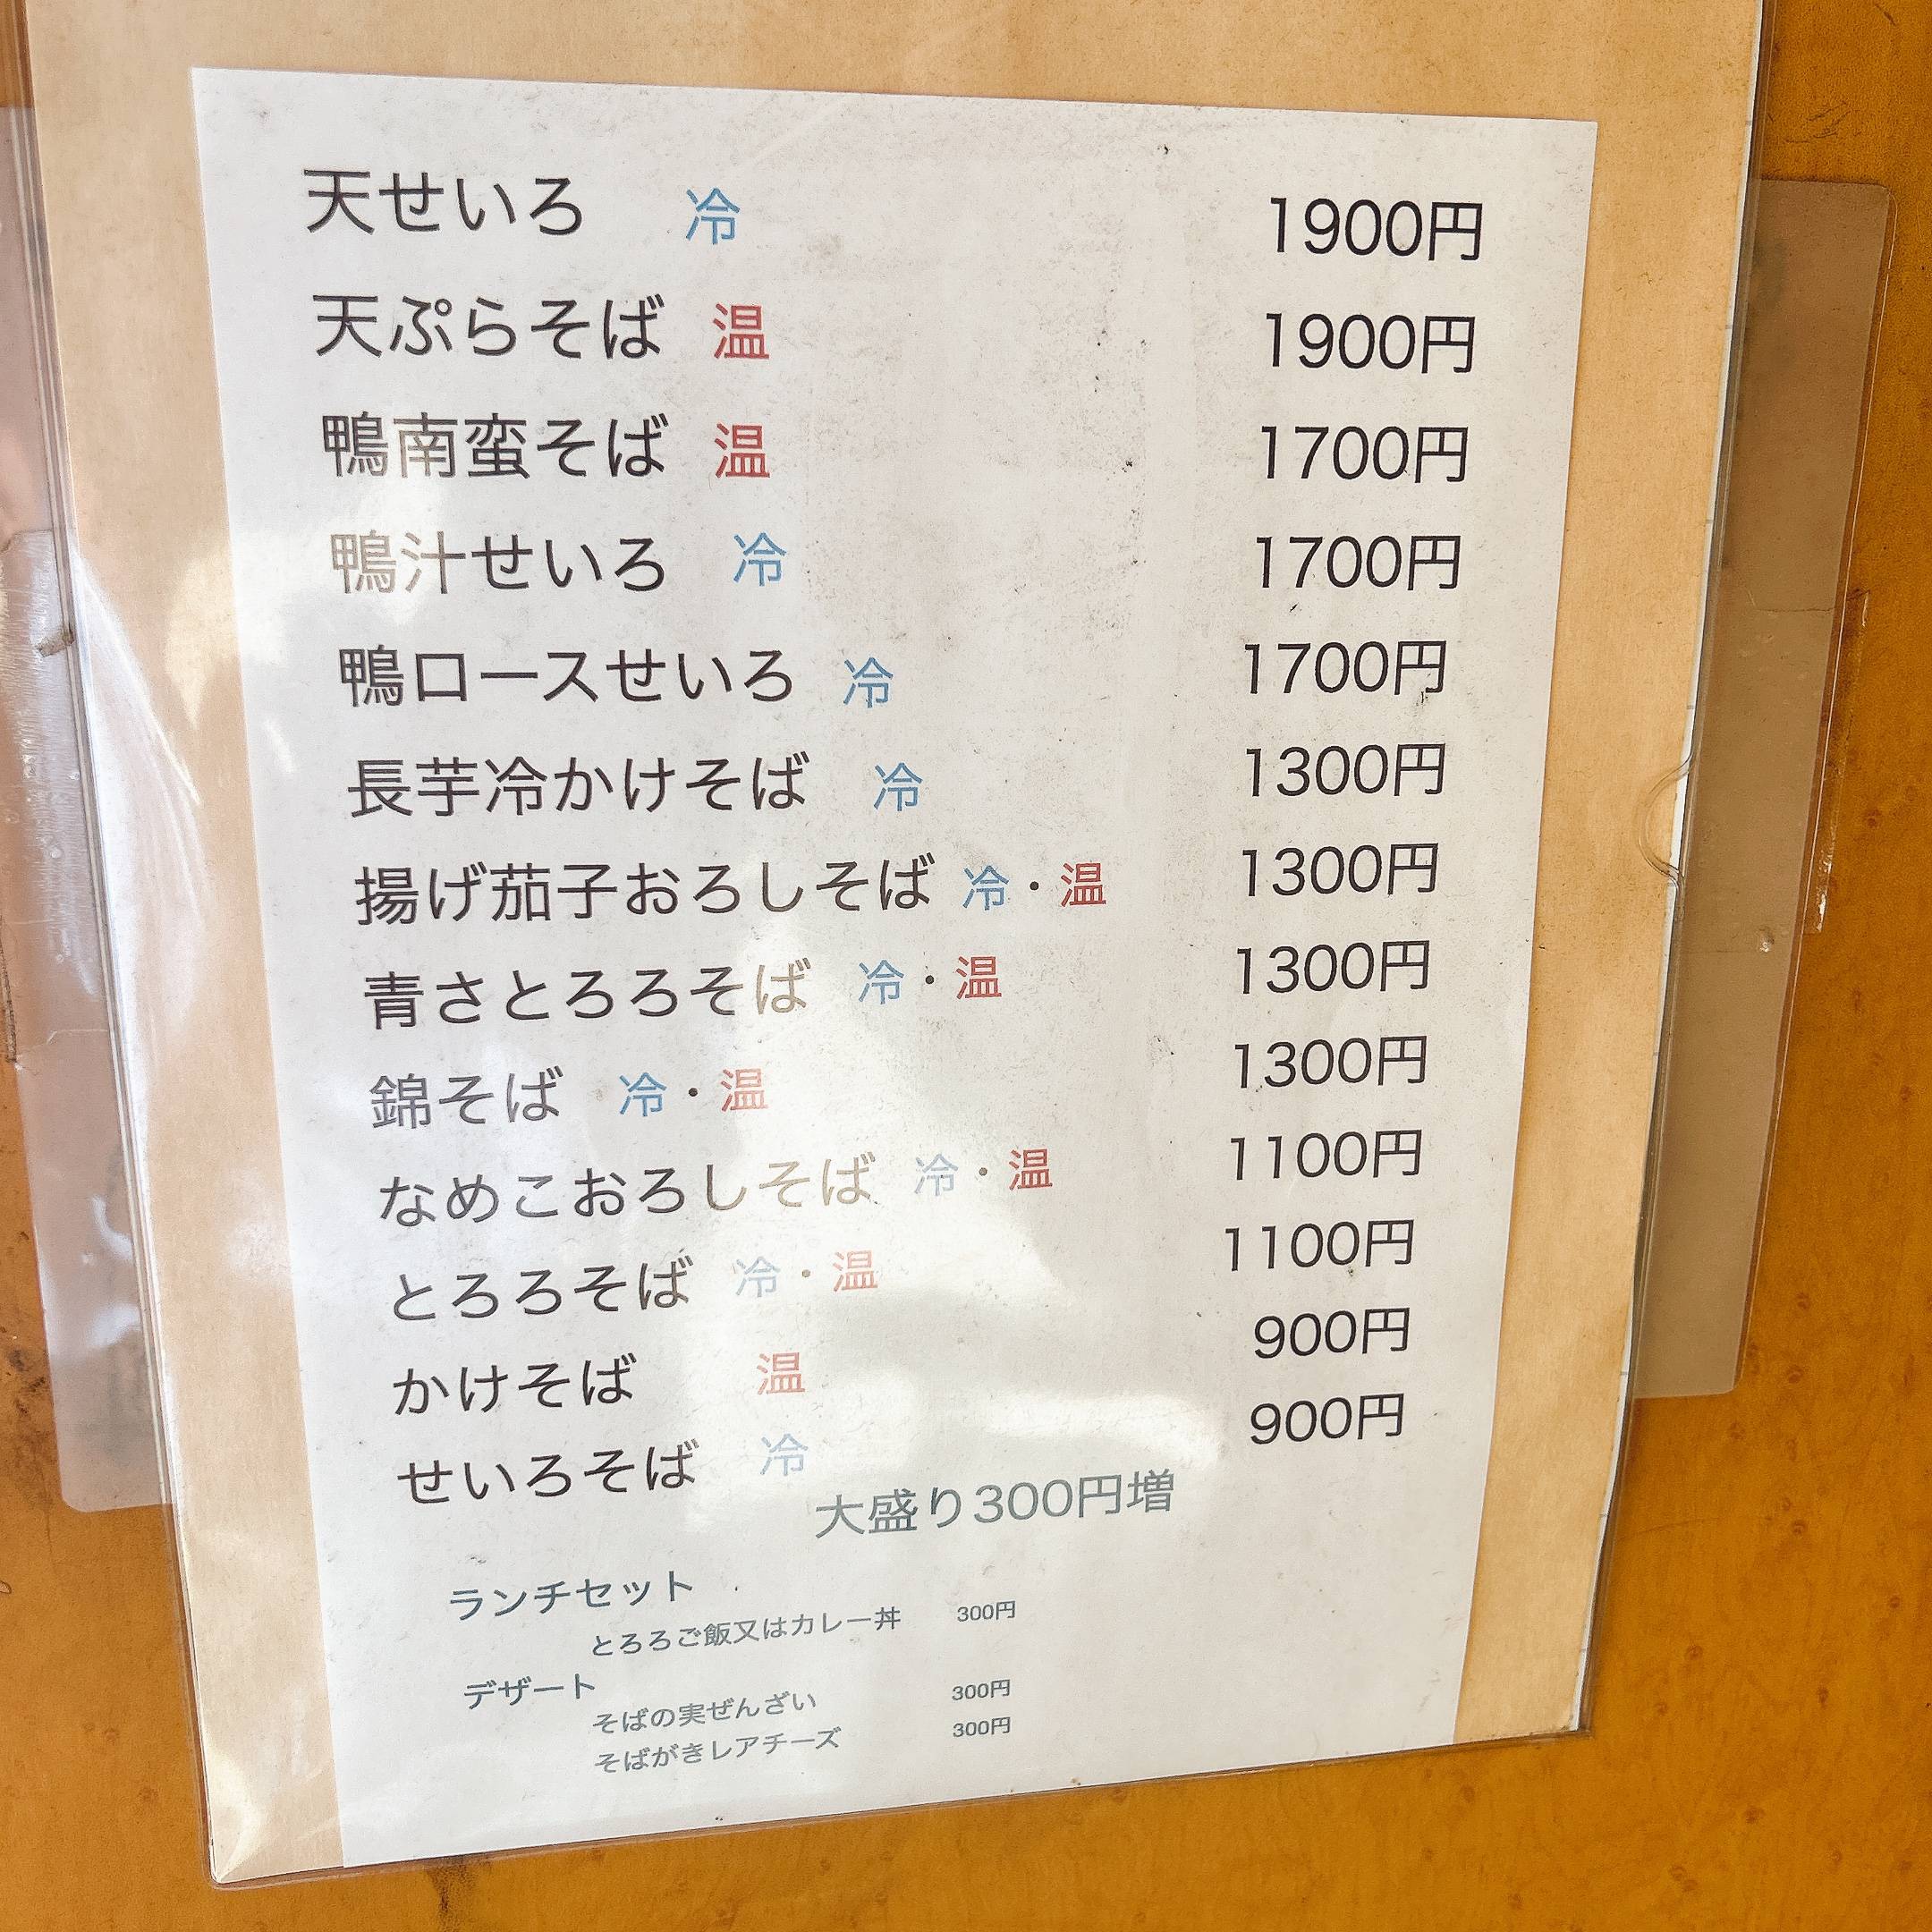 天せいろ 冷 1900円
天ぷらそば 温 1900円
鴨南蛮そば 温 1700円
鴨汁せいろ 冷 1700円
鴨ロースせいろ 冷 1700円
長芋冷かけそば 冷 1300円
揚げ茄子おろしそば 冷・温 1300円
青さとろろそば 冷・温 1300円
錦そば 冷・温 1300円
なめこおろしそば 冷・温 1100円
とろろそば 冷・温 1100円
かけそば 温 900円
せいろそば 冷 900円
大盛り300円増
ランチセット
とろろご飯又はカレー丼 300円
デザート
そばの実ぜんざい 300円
そばがきレアチーズ 300円